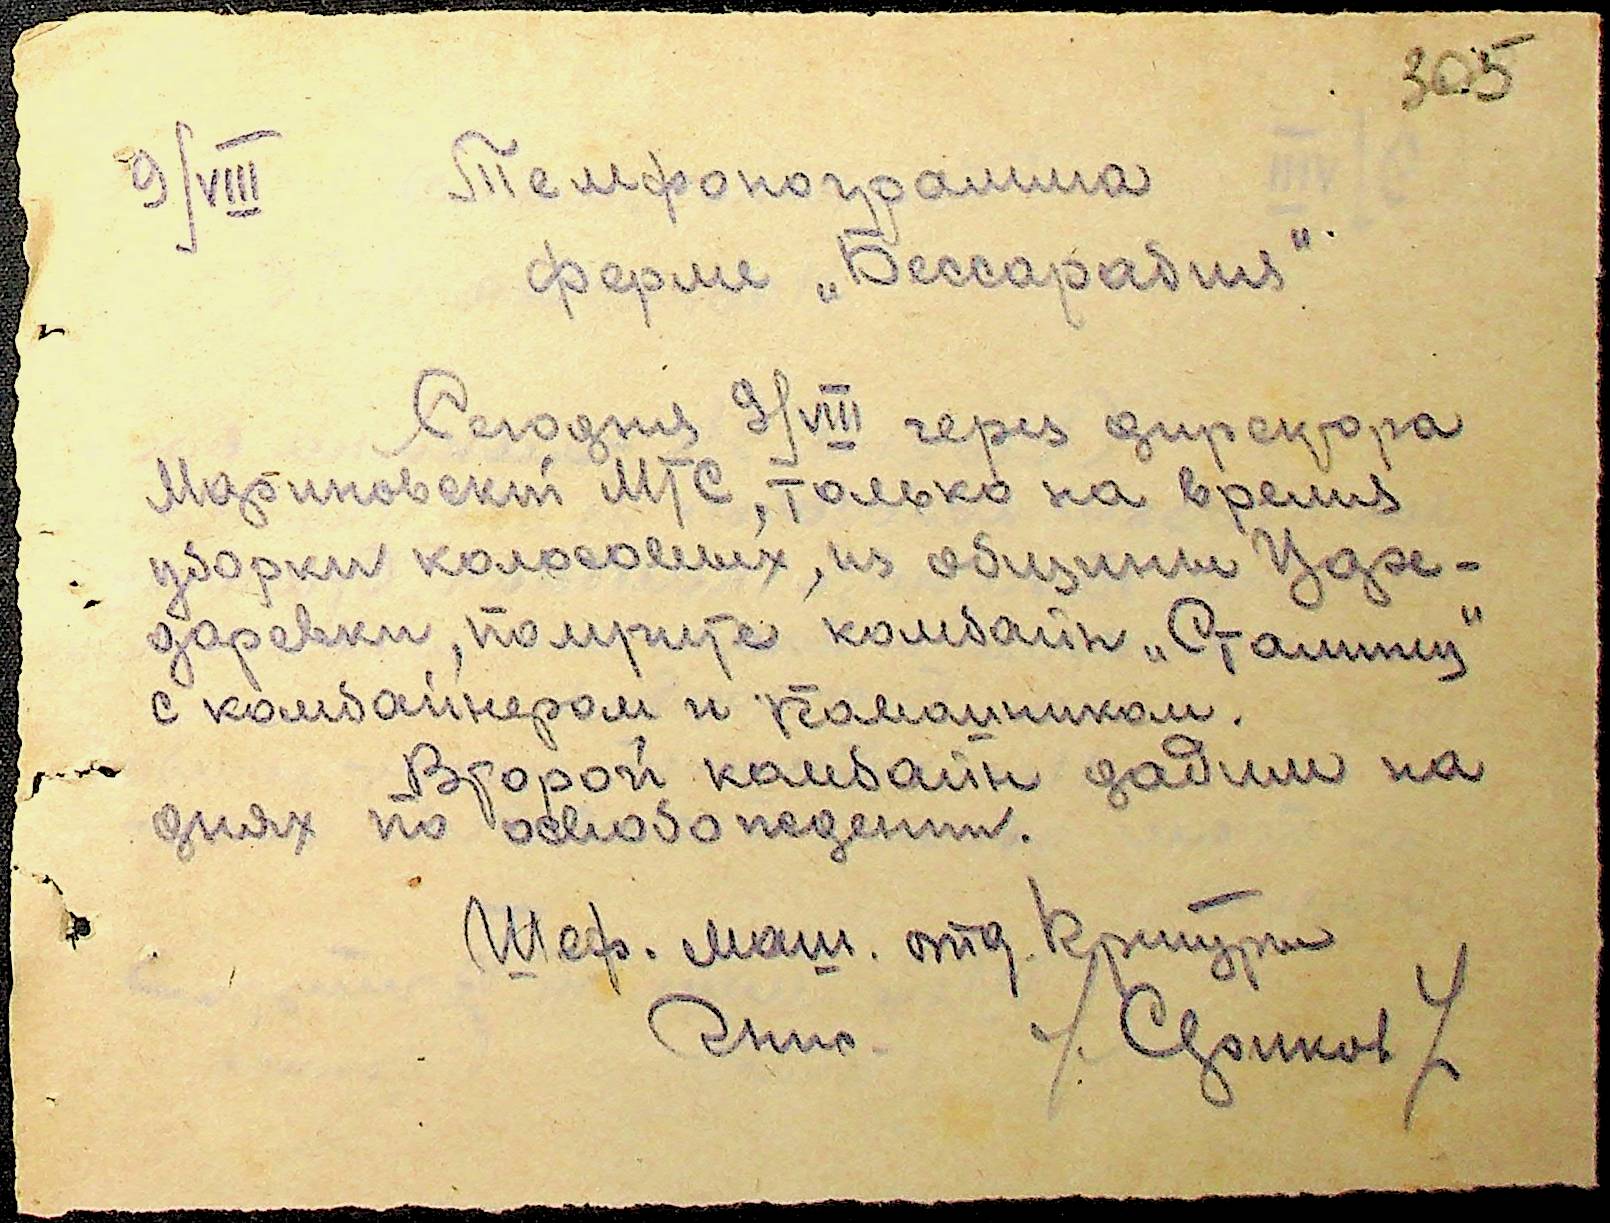 305
9/VIII Телефонограмма
ферме „Бессарабия“.
Сегодня 9/VIII через директора
Мариновской МТС, только на время
уборки колосовых, из общины
даревки, получите комбайн „Сталинец“
с комбайнером и помощником.
Второй комбайн дадим на
днях по освобождении.
Шеф. маш. отд.